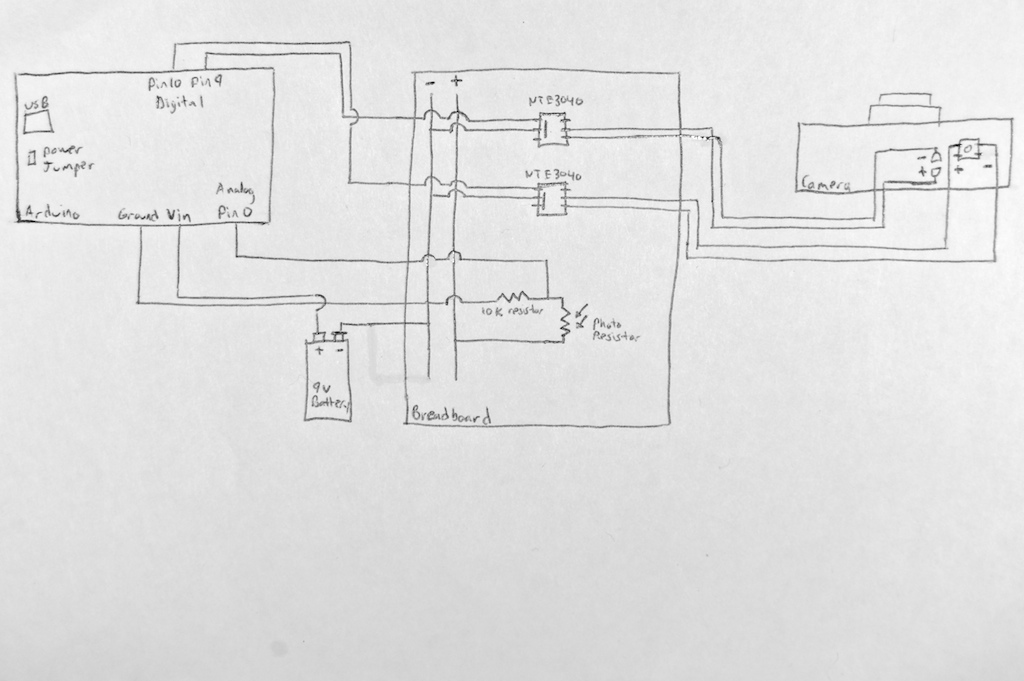 Pin10 Pin9
Digital
USB
Power
Jumper
Analog
Pin 0
Arduino
Ground Vin
- +
NTE3040
NTE3040
10K resistor
Photo
Resistor
+ -
9V
Battery
Breadboard
-
+
+ -
Camera